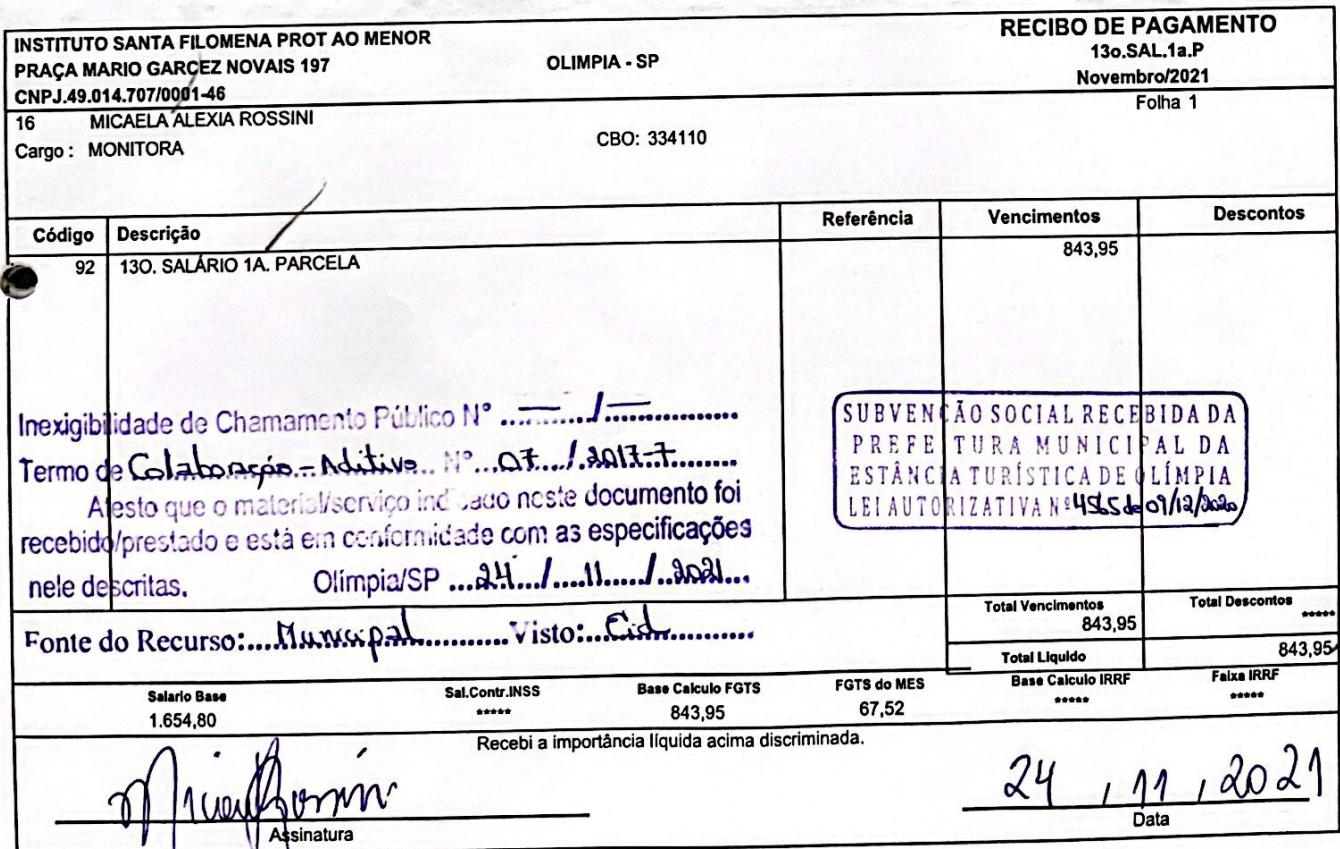 INSTITUTO SANTA FILOMENA PROT AO MENOR
PRAÇA MARIO GARCEZ NOVAIS 197 OLIMPIA - SP
CNPJ.49.014.707/0001-46
RECIBO DE PAGAMENTO
13o.SAL.1a.P
Novembro/2021
Folha 1
16 MICAELA ALEXIA ROSSINI
Cargo : MONITORA CBO: 334110
Código Descrição Referência Vencimentos Descontos
92 13O. SALÁRIO 1A. PARCELA 843,95
Inexigibilidade de Chamamento Público N° ......../.............
Termo de Colaboração - Aditivo N° ...07.../.2017-7........
Atesto que o material/serviço indicado neste documento foi
recebido/prestado e está em conformidade com as especificações
nele descritas. Olímpia/SP ....24..../....11....../..2021...
SUBVENÇÃO SOCIAL RECEBIDA DA
PREFEITURA MUNICIPAL DA
ESTÂNCIA TURÍSTICA DE OLÍMPIA
LEI AUTORIZATIVA Nº 4565 de 09/12/2020
Fonte do Recurso:....Municipal...........Visto:...Cid............
Total Vencimentos Total Descontos
843,95 *****
Total Liquido 843,95
Salario Base Sal.Contr.INSS Base Calculo FGTS FGTS do MES Base Calculo IRRF Faixa IRRF
1.654,80 ***** 843,95 67,52 ***** *****
Recebi a importância líquida acima discriminada.
24 / 11 / 2021
Assinatura Data